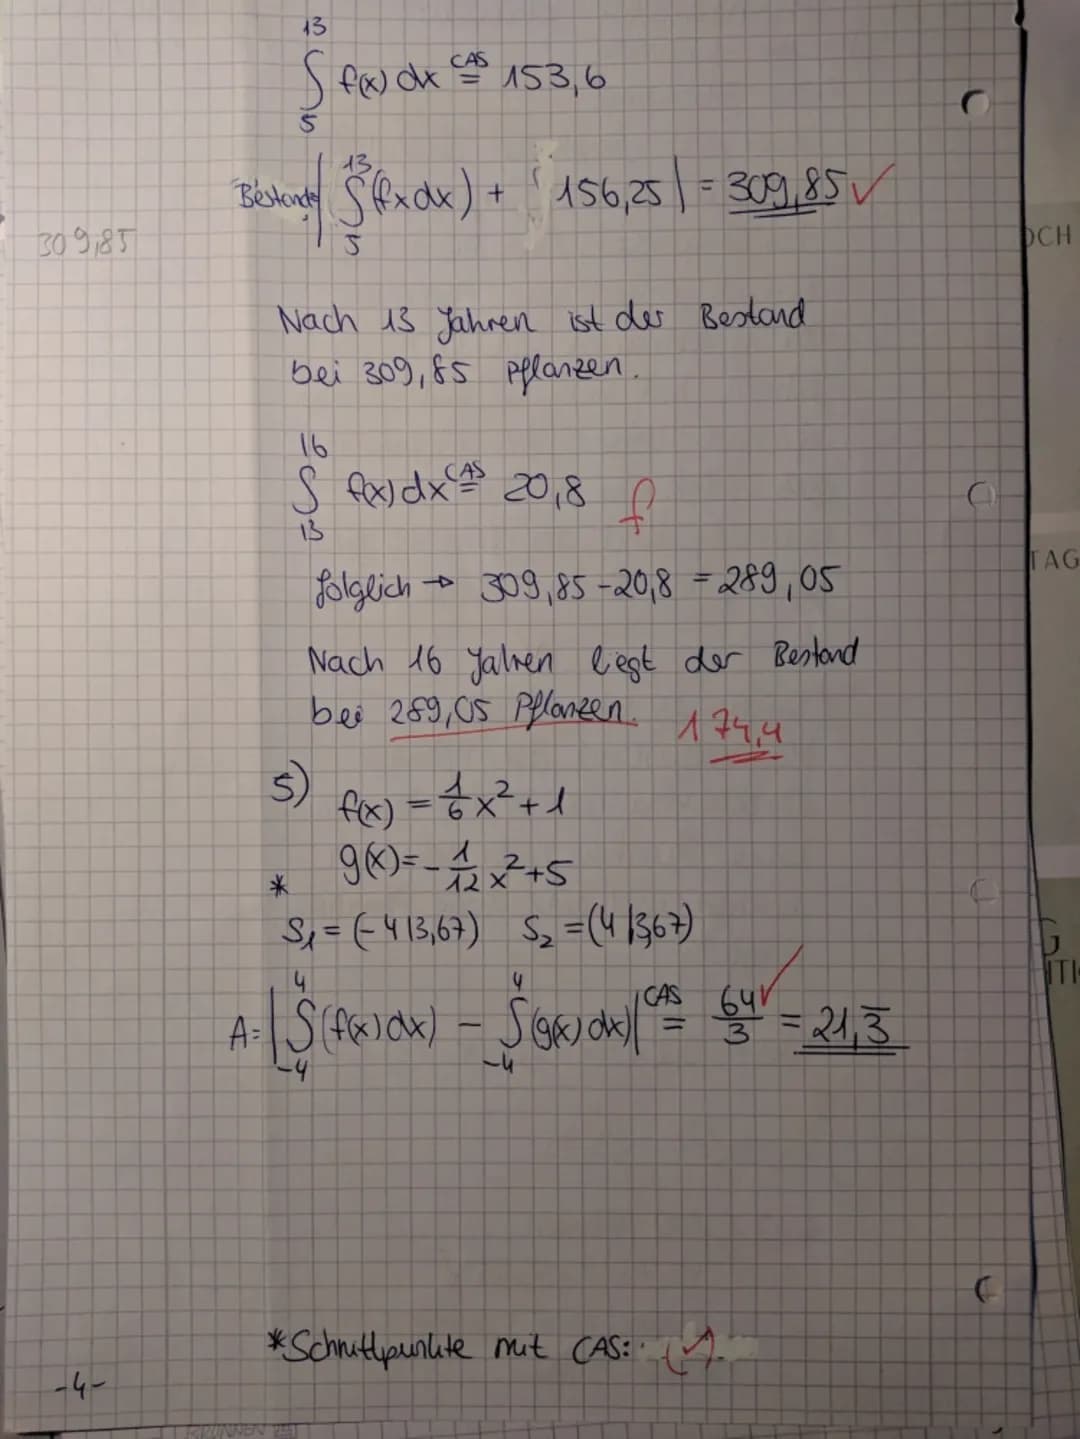 13
∫ f(x) dx CAS= 153,6
5
Bestand: | 13∫5 (fxdx) + 156,25 | = 309,85 ✓
309,85
OCH
Nach 13 Jahren ist der Bestand
bei 309,85 Pflanzen.
16
∫ f(x) dx CAS= 20,8 f
13
TAG
folglich → 309,85 - 20,8 = 289,05
Nach 16 Jahren liegt der Bestand
bei 289,05 Pflanzen. 174,4
5) f(x) = 1/6 x² + 1
* g(x) = - 1/12 x² + 5
S₁ = (-4|3,67) S₂ = (4|3,67)
G
ITI
A = | 4∫-4 (f(x) dx) - 4∫-4 (g(x) dx) | CAS= 64/3 ✓ = 21,3̅
*Schnittpunkte mit CAS: (✓)
-4-